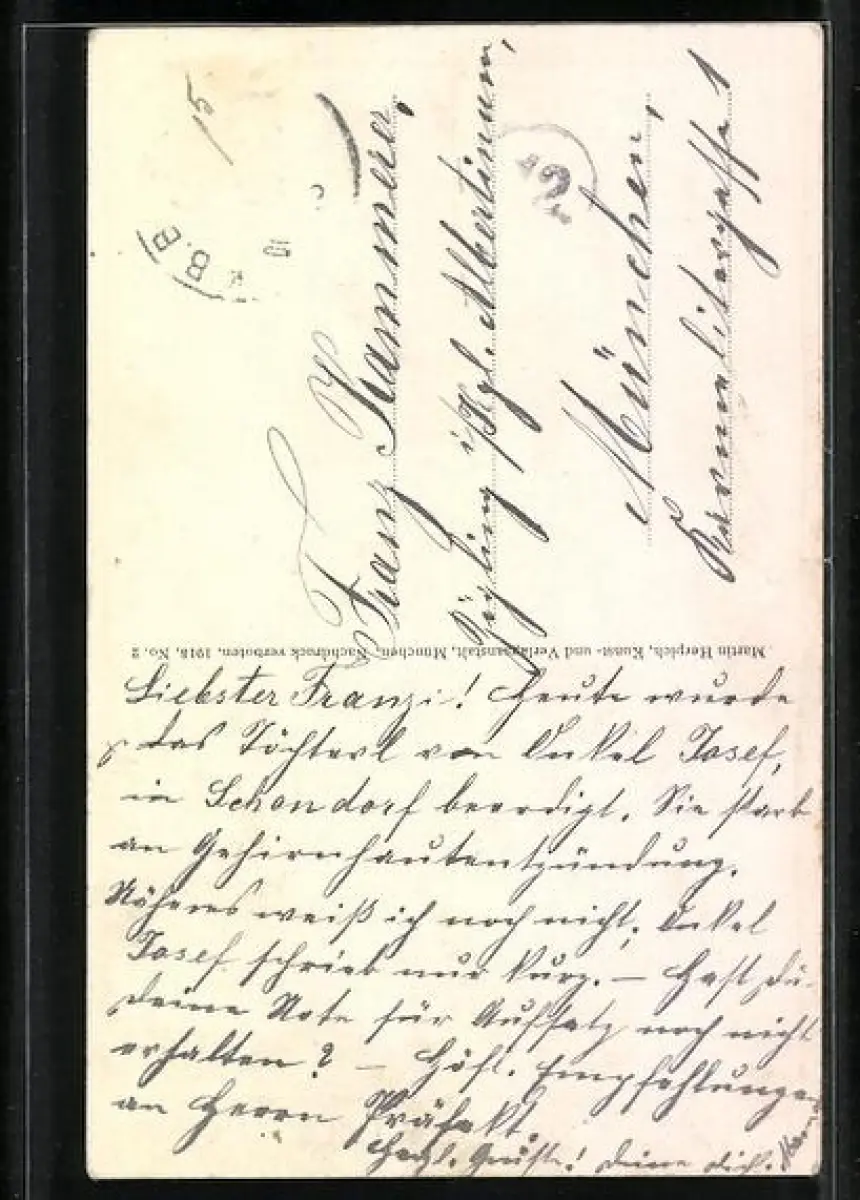 15
B.B.
Franz Kammerer,
Zögling i/Kgl. Albertinum,
München,
Karmelitergasse 1
Martin Herpich, Kunst- und Verlagsanstalt, München, Nachdruck verboten, 1918, No. 2
Liebster Franzi! Heute wurde
das Töchterl von Onkel Josef,
in Schondorf beerdigt. Sie starb
an Gehirnhautentzündung.
Näheres weiß ich noch nicht, Onkel
Josef schrieb nur kurz. – Hast du
deine Note für Aufsatz noch nicht
erhalten? – Höfl. Empfehlungen
an Herrn Präfekt.
Herzl. Grüße! Deine dich.